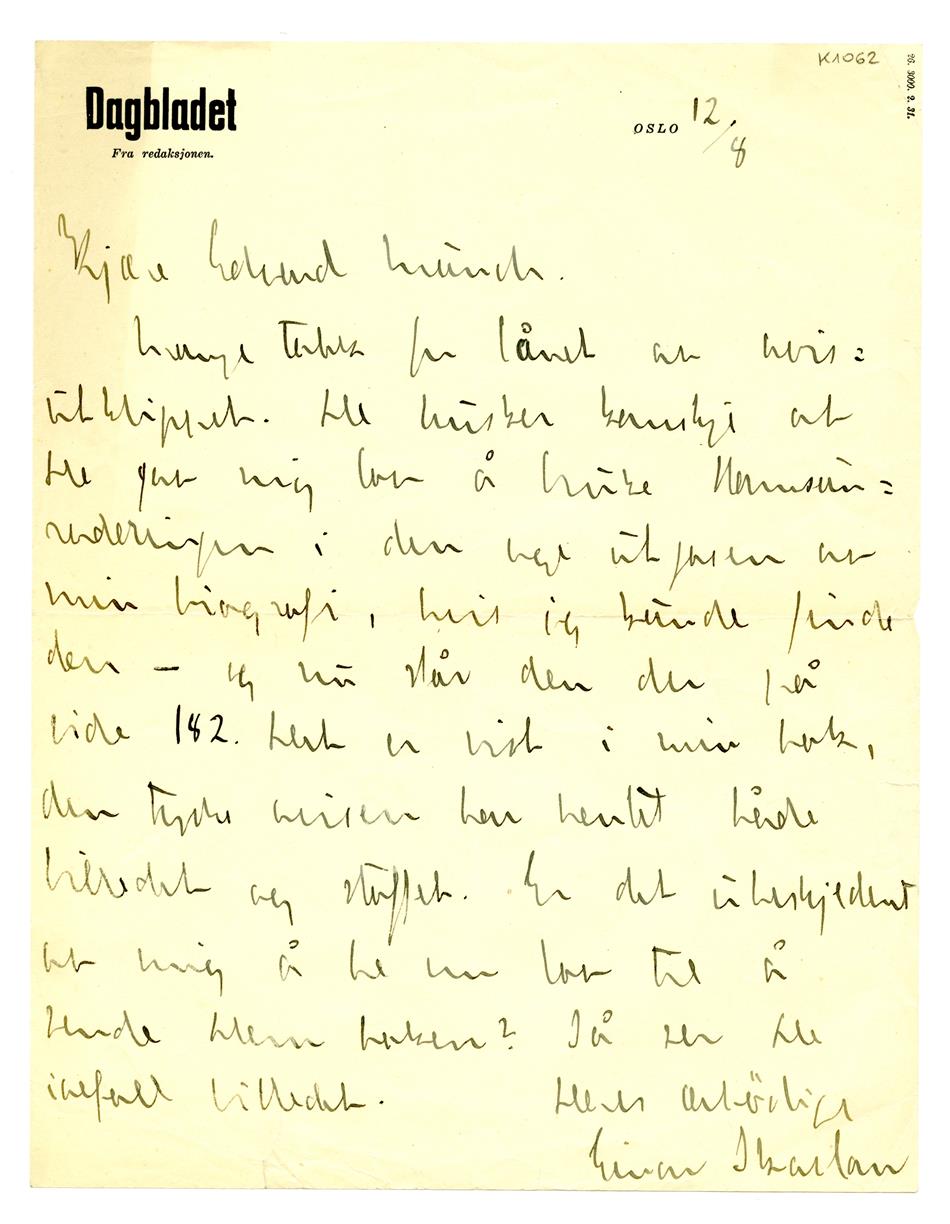 K1062
26. 3000. 2. 31.
Dagbladet
Fra redaksjonen.
OSLO 12/8
Kjære Edvard Munch.
Mange takk for lånet av avis=
utklippet. De husker kanskje at
De gav mig lov å bruke Hamsun=
raderingen i den nye utgaven av
min biografi, hvis jeg kunde finde
den – og nu står den der på
side 182. Det er vist i min bok,
den tyske avisen har hentet både
billedet og stoffet. Er det ubeskjedent
av mig å be um lov til å
sende Dem boken? Så ser De
iallfall billedet.
Deres ærbödige
Einar Skavlan